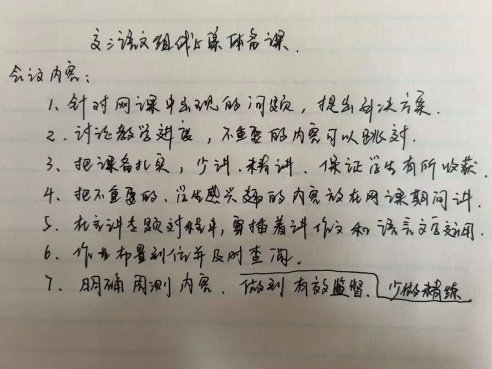 高三语文组线上集体备课.
会议内容：
1、针对网课中出现的问题，提出解决方案.
2、讨论教学进度，不重要的内容可以跳过.
3、把课备扎实，少讲、精讲、保证学生有所收获.
4、把不重要的、学生感兴趣的内容放在网课期间讲.
5、在主讲专题过程中，要插着讲作文和语言文字运用.
6、作业布置到位并及时查阅.
7、明确周测内容、做到有效监督、少做精练.